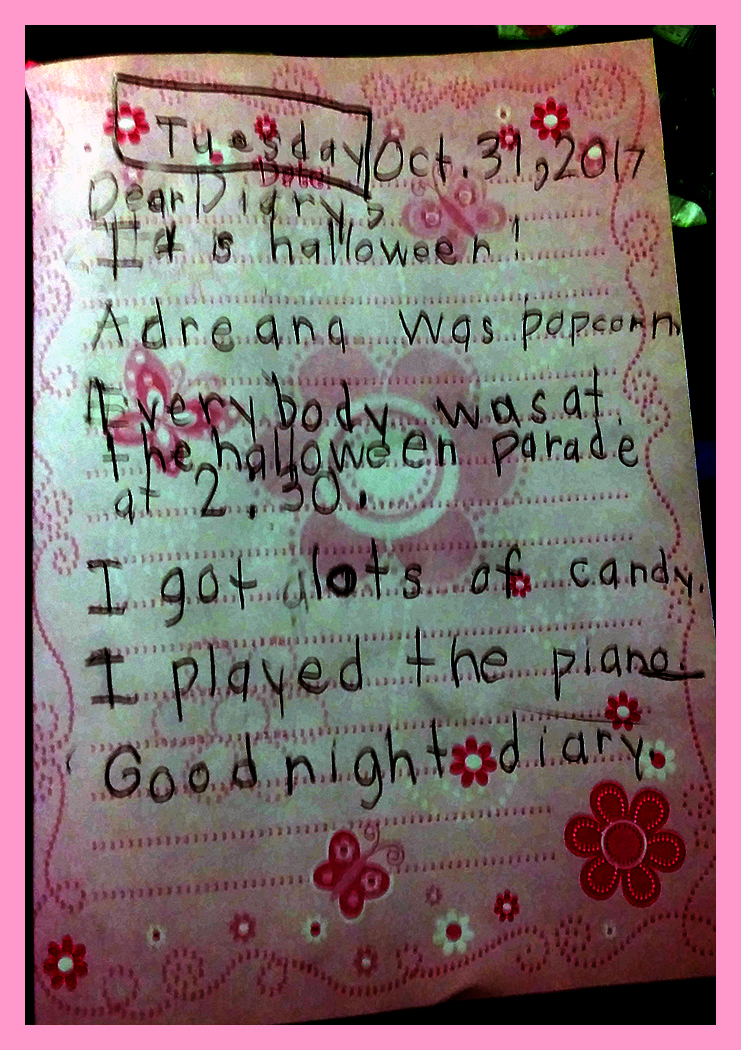 Tuesday Oct. 31, 2017
Date:
Dear Diary,
It is halloween!
Adreana was popcorn.
Everybody was at
the halloween parade
at 2:30.
I got lots of candy.
I played the piano.
Good night diary.